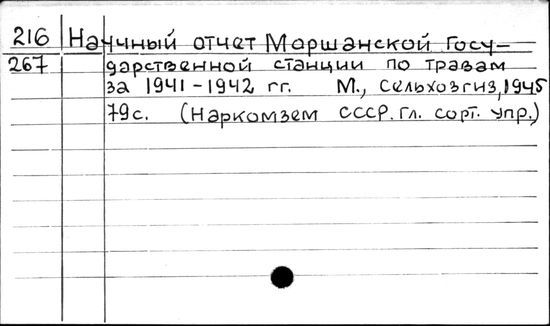 216 Научный отчет Моршанской Госу-
267 дарственной станции по травам
за 1941-1942 гг. М., Сельхозгиз, 1945
79с. (Наркомзем СССР. гл. сорт. упр.)